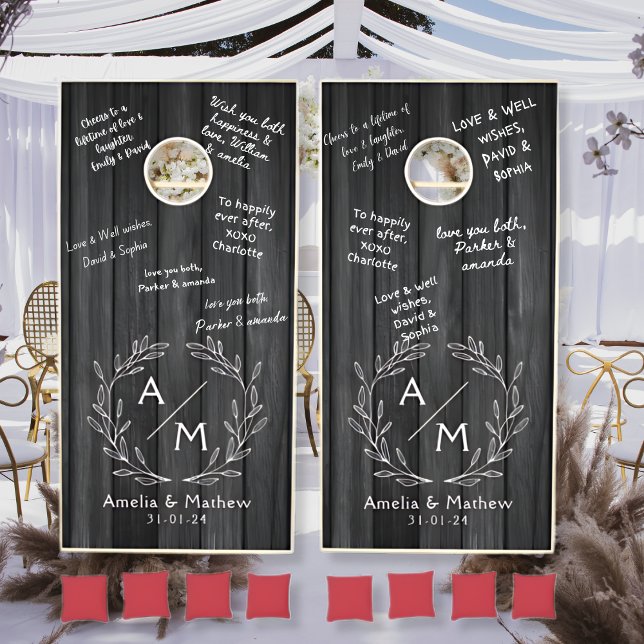 Cheers to a
lifetime of love &
laughter.
Emily & David
Wish you both
happiness &
love, William
& amelia
Love & Well wishes,
David & Sophia
To happily
ever after,
XOXO
Charlotte
love you both,
Parker & amanda
love you both,
Parker & amanda
A
M
Amelia & Mathew
31-01-24
Cheers to a lifetime of
love & laughter.
Emily & David
LOVE & WELL
WISHES,
DAVID &
SOPHIA
To happily
ever after,
XOXO
Charlotte
love you both,
Parker &
amanda
Love & Well
wishes,
David &
Sophia
A
M
Amelia & Mathew
31-01-24